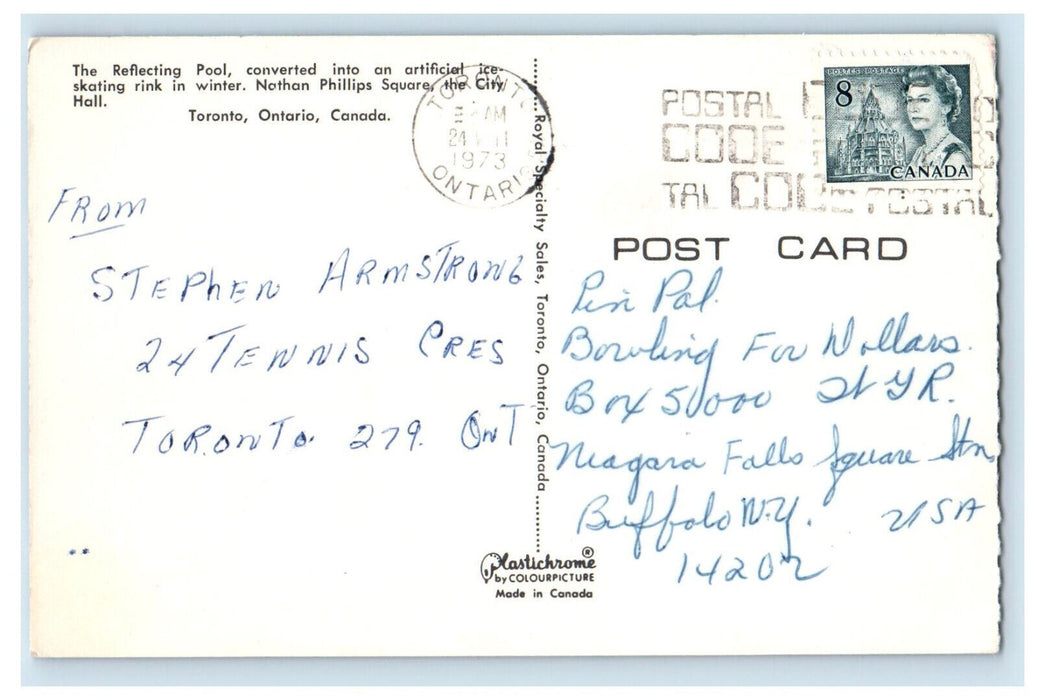 The Reflecting Pool, converted into an artificial ice-
skating rink in winter. Nathan Phillips Square, the City
Hall.
Toronto, Ontario, Canada.
TORONTO
AM
24
1973
ONTARIO
POSTAL
CODE
TAL CODE POSTAL
POSTES POSTAGE
8
CANADA
POST CARD
FROM
STEPHEN ARMSTRONG
24 TENNIS CRES
TORONTO 279. ONT
Royal Specialty Sales, Toronto, Ontario, Canada
Pin Pal.
Bowling For Dollars.
Box 50000 W G R.
Niagara Falls Square Stn.
Buffalo N.Y. USA
14202
Plastichrome®
by COLOURPICTURE
Made in Canada